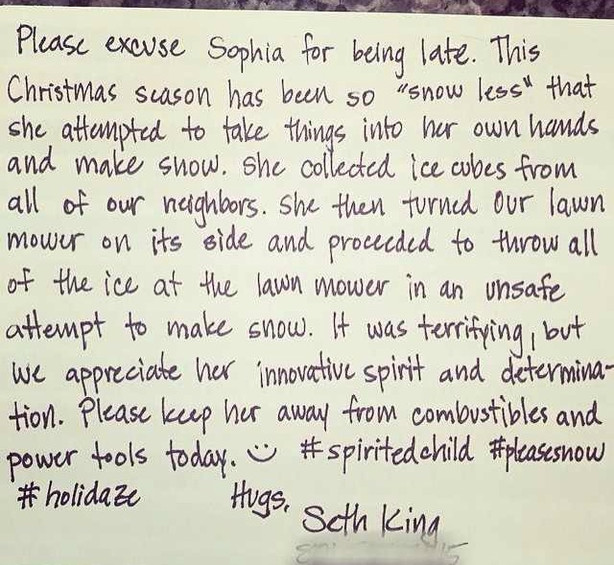 Please excuse Sophia for being late. This
Christmas season has been so "snow less" that
she attempted to take things into her own hands
and make snow. She collected ice cubes from
all of our neighbors. She then turned our lawn
mower on its side and proceeded to throw all
of the ice at the lawn mower in an unsafe
attempt to make snow. It was terrifying, but
we appreciate her innovative spirit and determina-
tion. Please keep her away from combustibles and
power tools today. #spiritedchild #pleasesnow
#holidaze Hugs,
Seth King